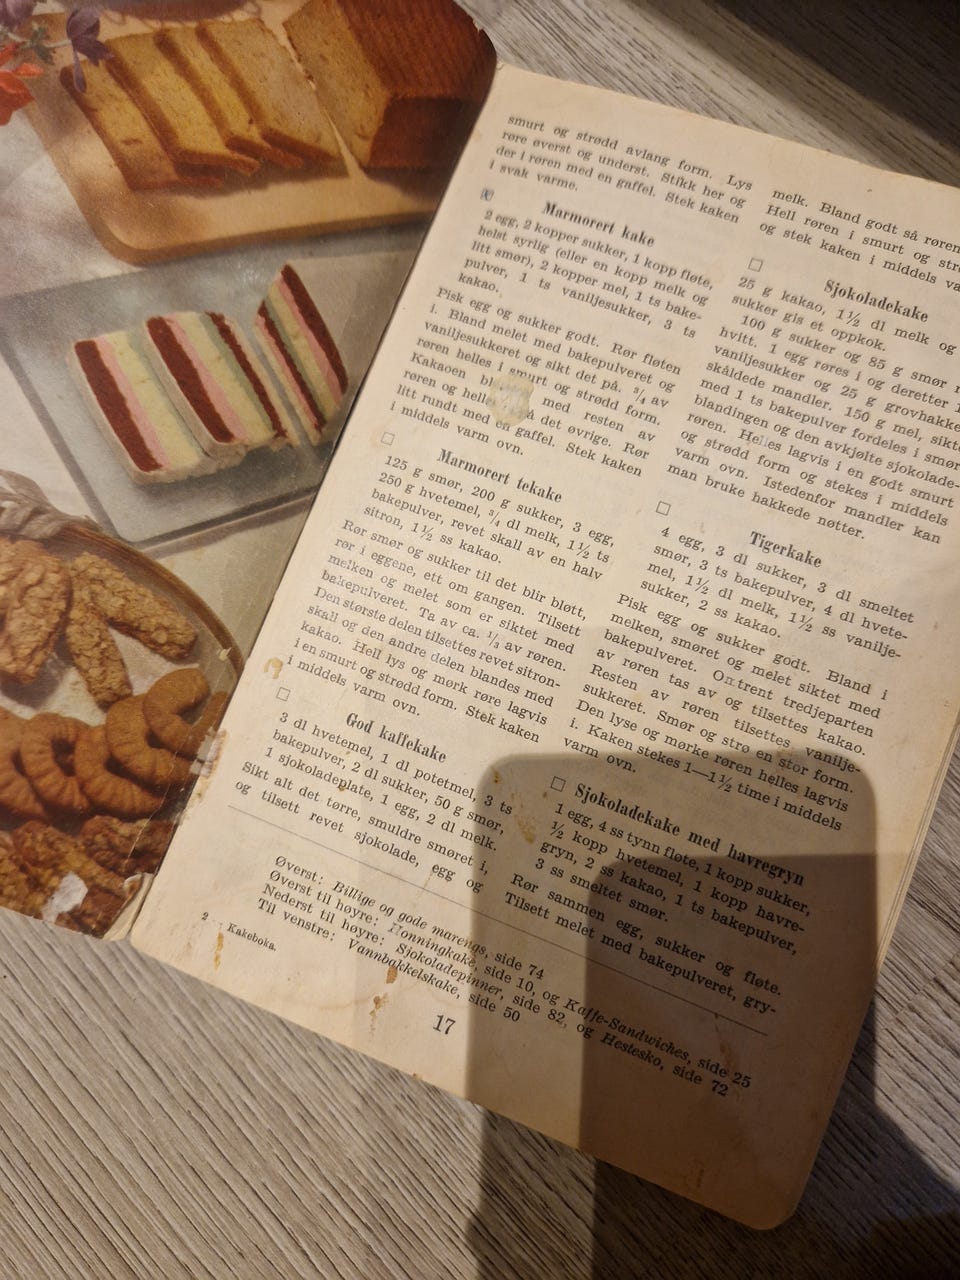 smurt og strødd avlang form. Lys
røre øverst og underst. Stikk her og
der i røren med en gaffel. Stek kaken
i svak varme.
Marmorert kake
2 egg, 2 kopper sukker, 1 kopp fløte,
helst syrlig (eller en kopp melk og
litt smør), 2 kopper mel, 1 ts bake-
pulver, 1 ts vaniljesukker, 3 ts
kakao.
Pisk egg og sukker godt. Rør fløten
i. Bland melet med bakepulveret og
vaniljesukkeret og sikt det på. ¾ av
røren helles i smurt og strødd form.
Kakaoen med resten av
røren og helles det øvrige. Rør
litt rundt med en gaffel. Stek kaken
i middels varm ovn.
Marmorert tekake
125 g smør, 200 g sukker, 3 egg,
250 g hvetemel, ¾ dl melk, 1½ ts
bakepulver, revet skall av en halv
sitron, 1½ ss kakao.
Rør smør og sukker til det blir bløtt,
rør i eggene, ett om gangen. Tilsett
melken og melet som er siktet med
bakepulveret. Ta av ca. ⅓ av røren.
Den største delen tilsettes revet sitron-
skall og den andre delen blandes med
kakao. Hell lys og mørk røre lagvis
i en smurt og strødd form. Stek kaken
i middels varm ovn.
God kaffekake
3 dl hvetemel, 1 dl potetmel, 3 ts
bakepulver, 2 dl sukker, 50 g smør,
1 sjokoladeplate, 1 egg, 2 dl melk.
Sikt alt det tørre, smuldre smøret i,
og tilsett revet sjokolade, egg og
melk. Bland godt så røren
Hell røren i smurt og
og stek kaken i middels
Sjokoladekake
25 g kakao, 1½ dl melk og
sukker gis et oppkok.
100 g sukker og 85 g smør
hvitt. 1 egg røres i og deretter 1
vaniljesukker og 25 g grovhakke
skåldede mandler. 150 g mel, sikt
med 1 ts bakepulver fordeles i smør
blandingen og den avkjølte sjokolade-
røren. Helles lagvis i en godt smurt
og strødd form og stekes i middels
varm ovn. Istedenfor mandler kan
man bruke hakkede nøtter.
Tigerkake
4 egg, 3 dl sukker, 3 dl smeltet
smør, 3 ts bakepulver, 4 dl hvete-
mel, 1½ dl melk, 1½ ss vanilje-
sukker, 2 ss kakao.
Pisk egg og sukker godt. Bland i
melken, smøret og melet siktet med
bakepulveret. Omtrent tredjeparten
av røren tas av og tilsettes kakao.
Resten av røren tilsettes vanilje-
sukkeret. Smør og strø en stor form.
Den lyse og mørke røren helles lagvis
i. Kaken stekes 1—1½ time i middels
varm ovn.
Sjokoladekake med havregryn
1 egg, 4 ss tynn fløte, 1 kopp sukker,
½ kopp hvetemel, 1 kopp havre-
gryn, 2 ss kakao, 1 ts bakepulver,
3 ss smeltet smør.
Rør sammen egg, sukker og fløte.
Tilsett melet med bakepulveret, gry-
Øverst: Billige og gode marengs, side 74
Øverst til høyre: Honningkake, side 10, og Kaffe-Sandwiches, side 25
Nederst til høyre: Sjokoladepinner, side 82, og Hestesko, side 72
Til venstre: Vannbakkelskake, side 50
2 Kakeboka.
17